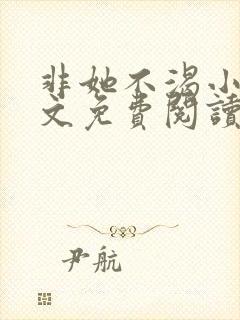 非她不渴小
文免費閱讀
尹航